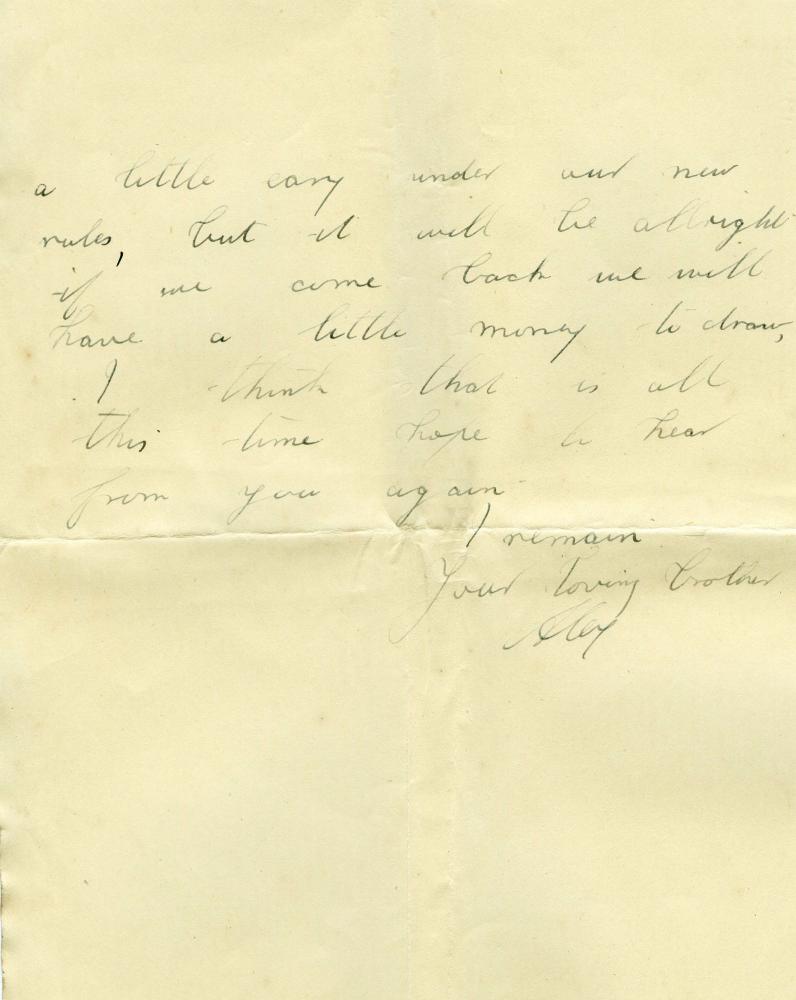 a little easy under our new
rules, but it will be allright
if we come back we will
have a little money to draw,
I think that is all
this time hope to hear
from you again
I remain
Your loving brother
Alex